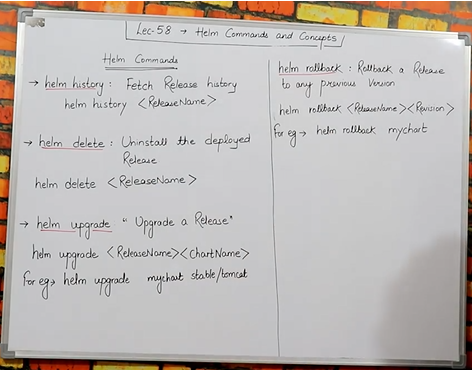 Lec-58 → Helm Commands and Concepts
Helm Commands
→ helm history : Fetch Release history
helm history <ReleaseName>
→ helm delete : Uninstall the deployed
Release
helm delete <ReleaseName>
→ helm upgrade "Upgrade a Release"
helm upgrade <ReleaseName><ChartName>
For eg → helm upgrade mychart stable/tomcat
helm rollback : Rollback a Release
to any previous version
helm rollback <ReleaseName><Revision>
For eg → helm rollback mychart